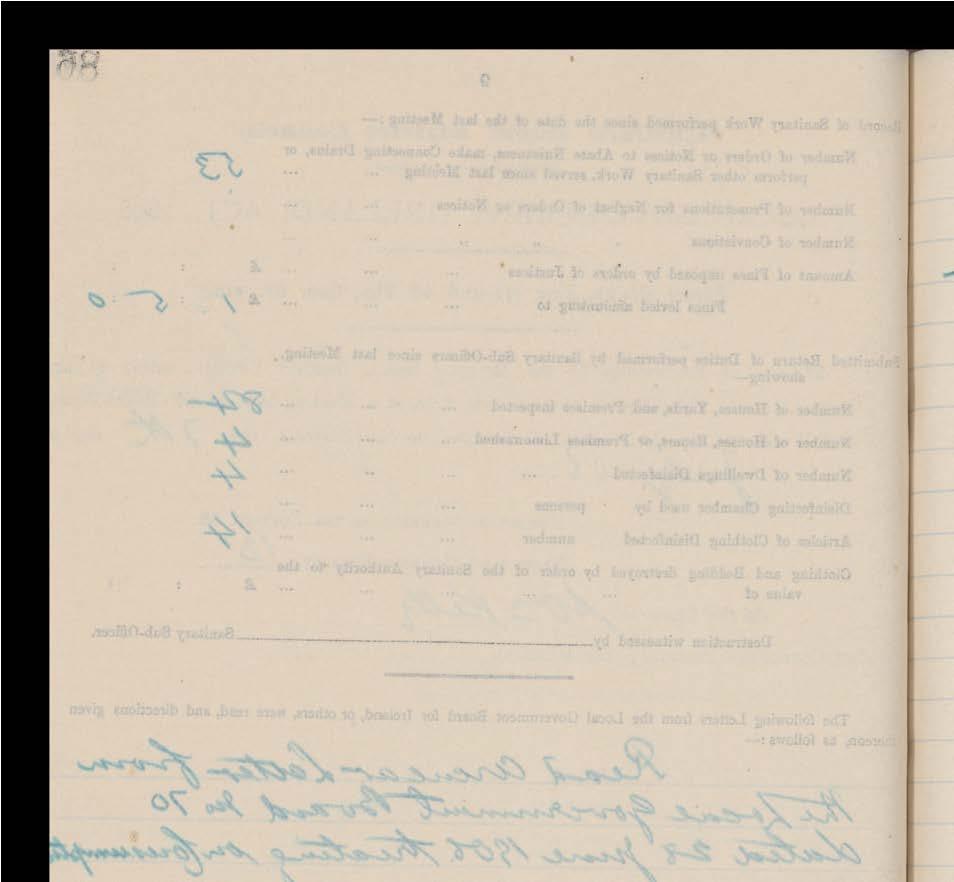 86
2
Record of Sanitary Work performed since the date of the last Meeting :—
Number of Orders or Notices to Abate Nuisances, make Connecting Drains, or
perform other Sanitary Work, served since last Meeting ... ... 53
Number of Prosecutions for Neglect of Orders or Notices ... ... ...
Number of Convictions " " " ... ...
Amount of Fines imposed by orders of Justices ... ... ... £ : :
Fines levied amounting to ... ... ... £ 1 : 5 : 0
Submitted Return of Duties performed by Sanitary Sub-Officers since last Meeting,
showing—
Number of Houses, Yards, and Premises inspected ... ... ... 84
Number of Houses, Rooms, or Premises Limewashed ... ... ... 4
Number of Dwellings Disinfected ... ... ... ... 4
Disinfecting Chamber used by persons ... ... ...
Articles of Clothing Disinfected number ... ... ... 14
Clothing and Bedding destroyed by order of the Sanitary Authority to the
value of ... ... ... ... ... £ : :
Destruction witnessed by Sanitary Sub-Officer.
The following Letters from the Local Government Board for Ireland, or others, were read, and directions given
thereon, as follows :—
Read Circular Letter from
the Local Government Board No 70
dated 28 June 1906 treating on